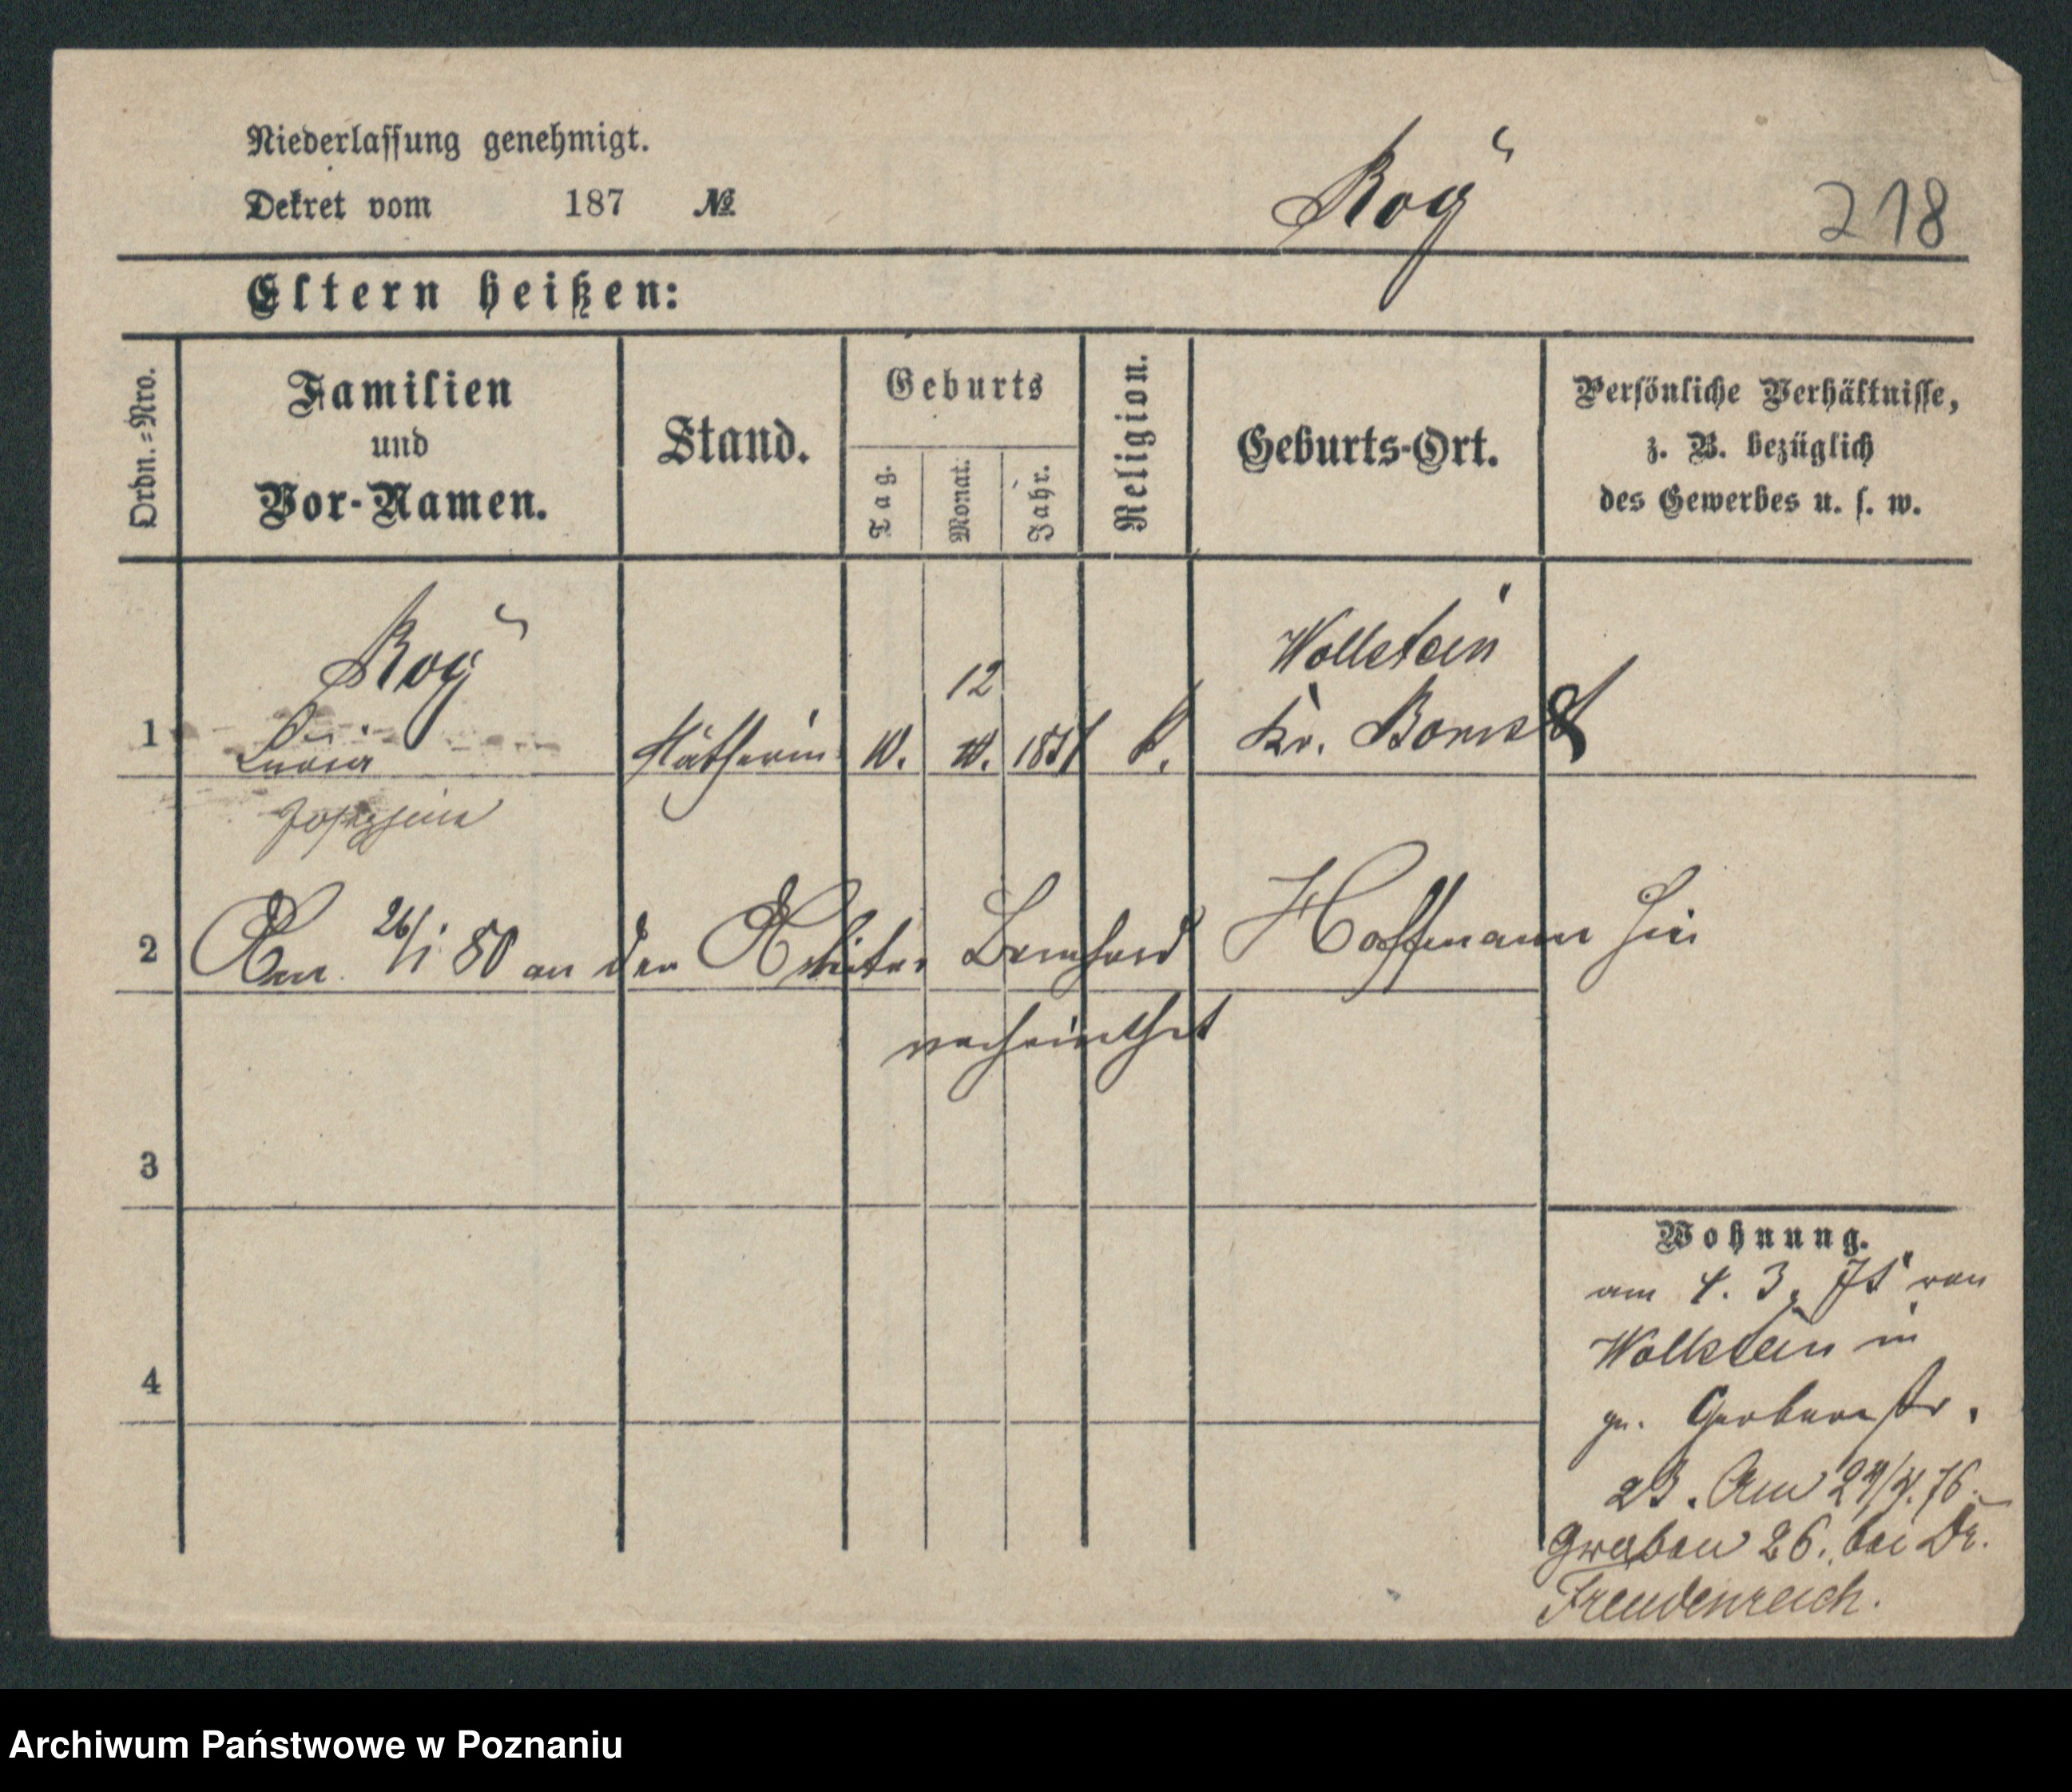 Niederlassung genehmigt.
Dekret vom 187 №
Roy
218
Eltern heißen:
Ordn.=Nro.
Familien
und
Vor-Namen.
Stand.
Geburts
Tag.
Monat.
Jahr.
Religion.
Geburts-Ort.
Persönliche Verhältnisse,
z. B. bezüglich
des Gewerbes u. s. w.
1
Roy
Josephine
Nätherin
10.
12
K.
Wollstein
Kr. Bomst
2
Am 26/1 80 an den Arbeiter Bernhard Hoffmann hier
verheirathet
3
4
Wohnung.
am 4. 3. 75 von
Wollstein in
gr. Gerberstr.
23. Am 76.
Graben 26. bei Dr.
Freudenreich.
Archiwum Państwowe w Poznaniu